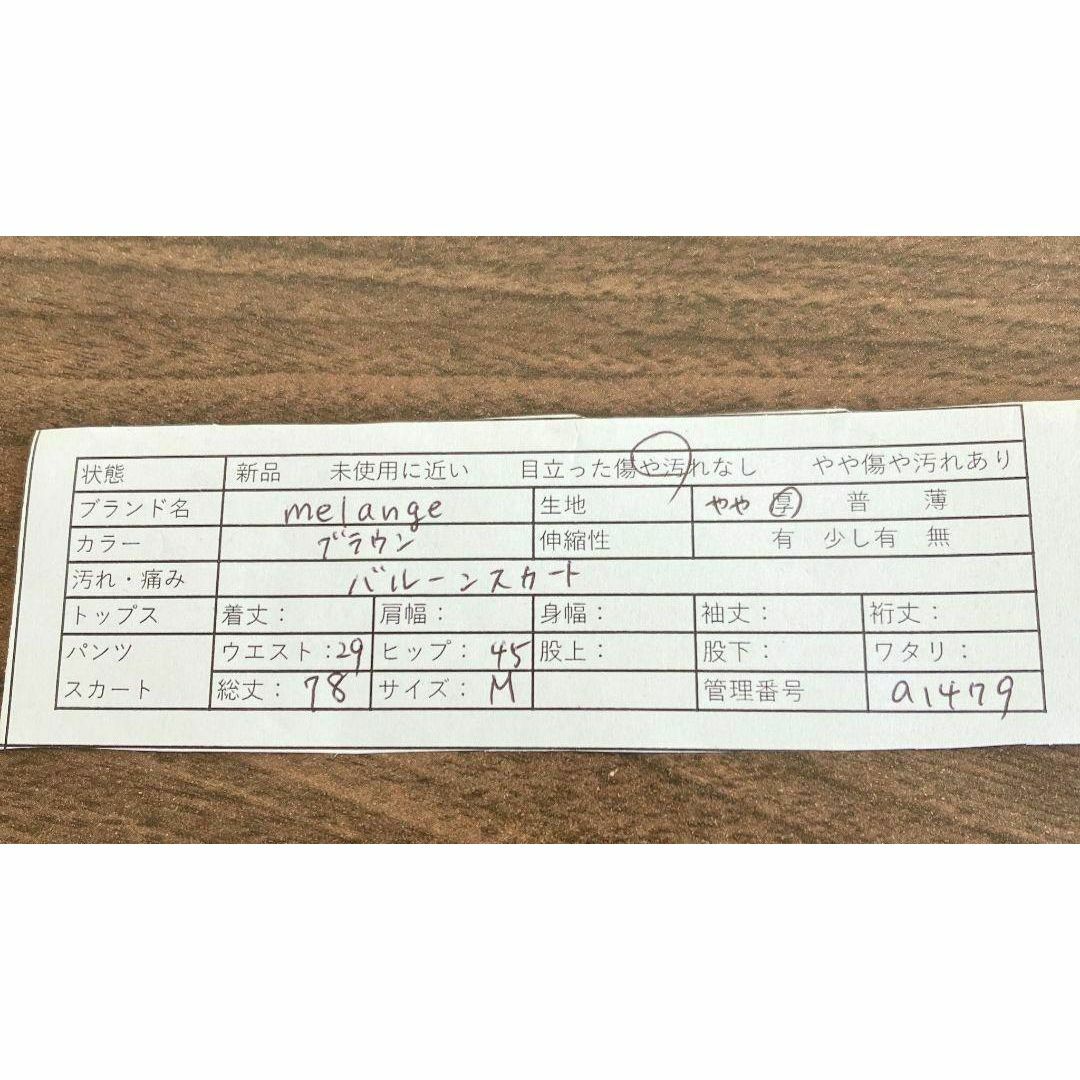 状態 新品 未使用に近い 目立った傷や汚れなし やや傷や汚れあり
ブランド名 melange 生地 やや 厚 普 薄
カラー ブラウン 伸縮性 有 少し有 無
汚れ・痛み バルーンスカート
トップス 着丈： 肩幅： 身幅： 袖丈： 裄丈：
パンツ ウエスト：29 ヒップ： 45 股上： 股下： ワタリ：
スカート 総丈： 78 サイズ： M 管理番号 a1479